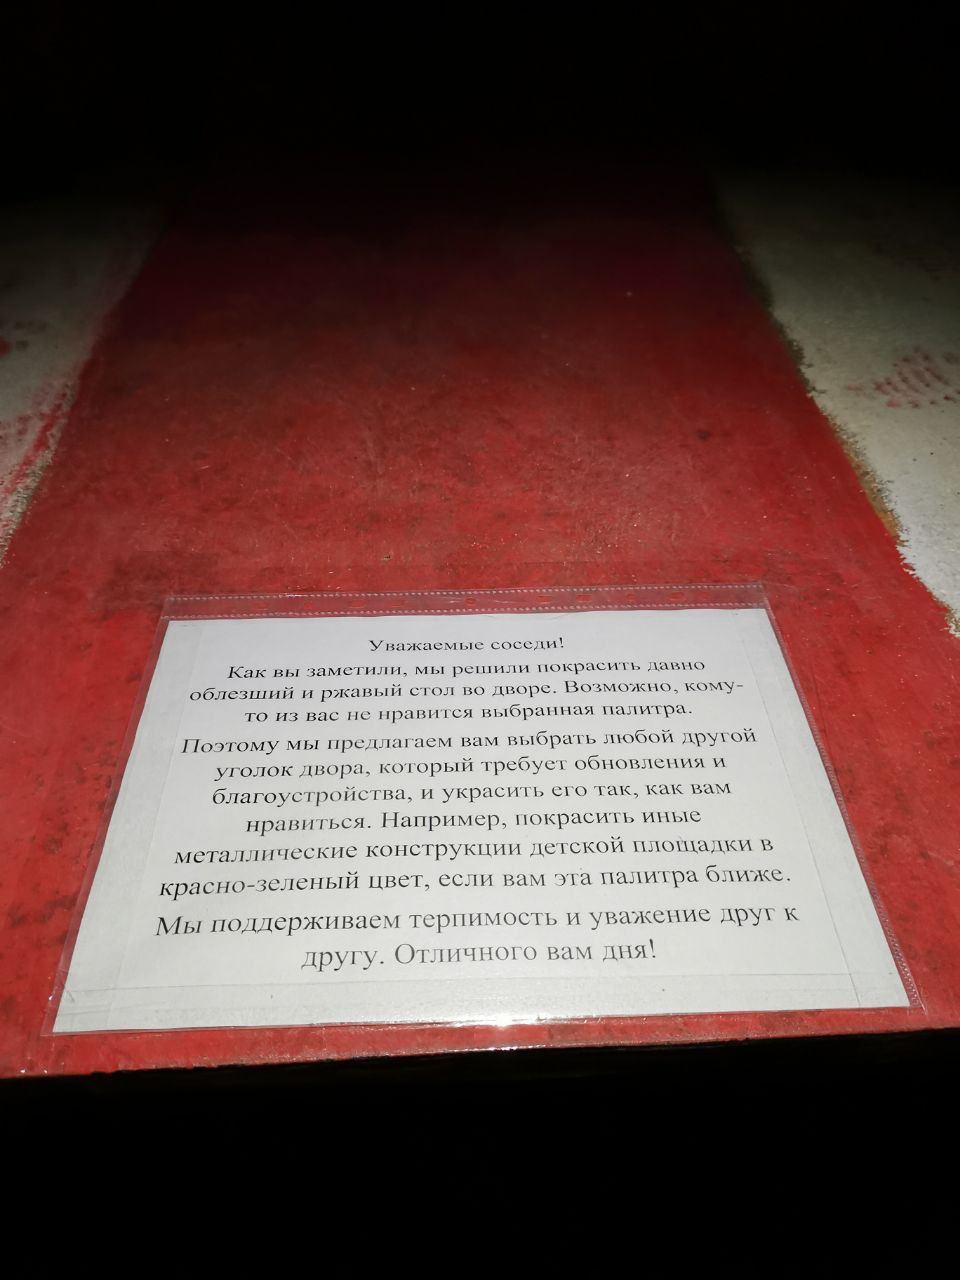 Уважаемые соседи!
Как вы заметили, мы решили покрасить давно
облезший и ржавый стол во дворе. Возможно, кому-
то из вас не нравится выбранная палитра.
Поэтому мы предлагаем вам выбрать любой другой
уголок двора, который требует обновления и
благоустройства, и украсить его так, как вам
нравиться. Например, покрасить иные
металлические конструкции детской площадки в
красно-зеленый цвет, если вам эта палитра ближе.
Мы поддерживаем терпимость и уважение друг к
другу. Отличного вам дня!